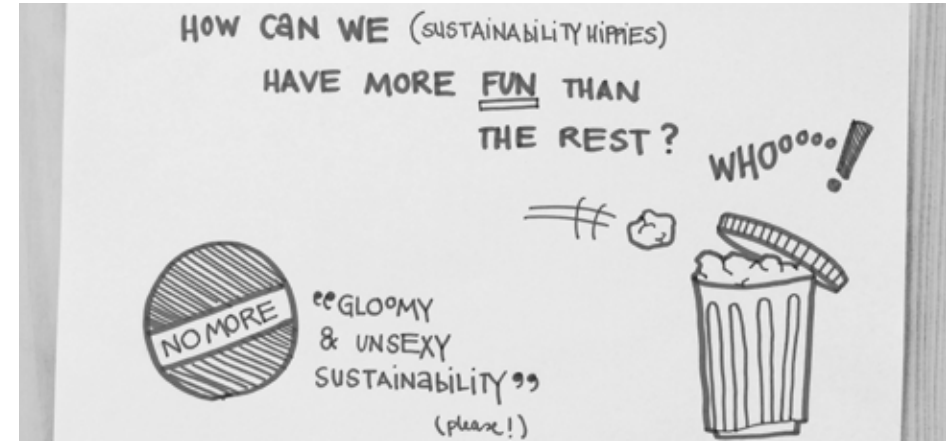 HOW CAN WE (SUSTAINABILITY HIPPIES)
HAVE MORE FUN THAN
THE REST?
WHOooooo!
NO MORE
“GLOOMY
& UNSEXY
SUSTAINABILITY”
(please!)